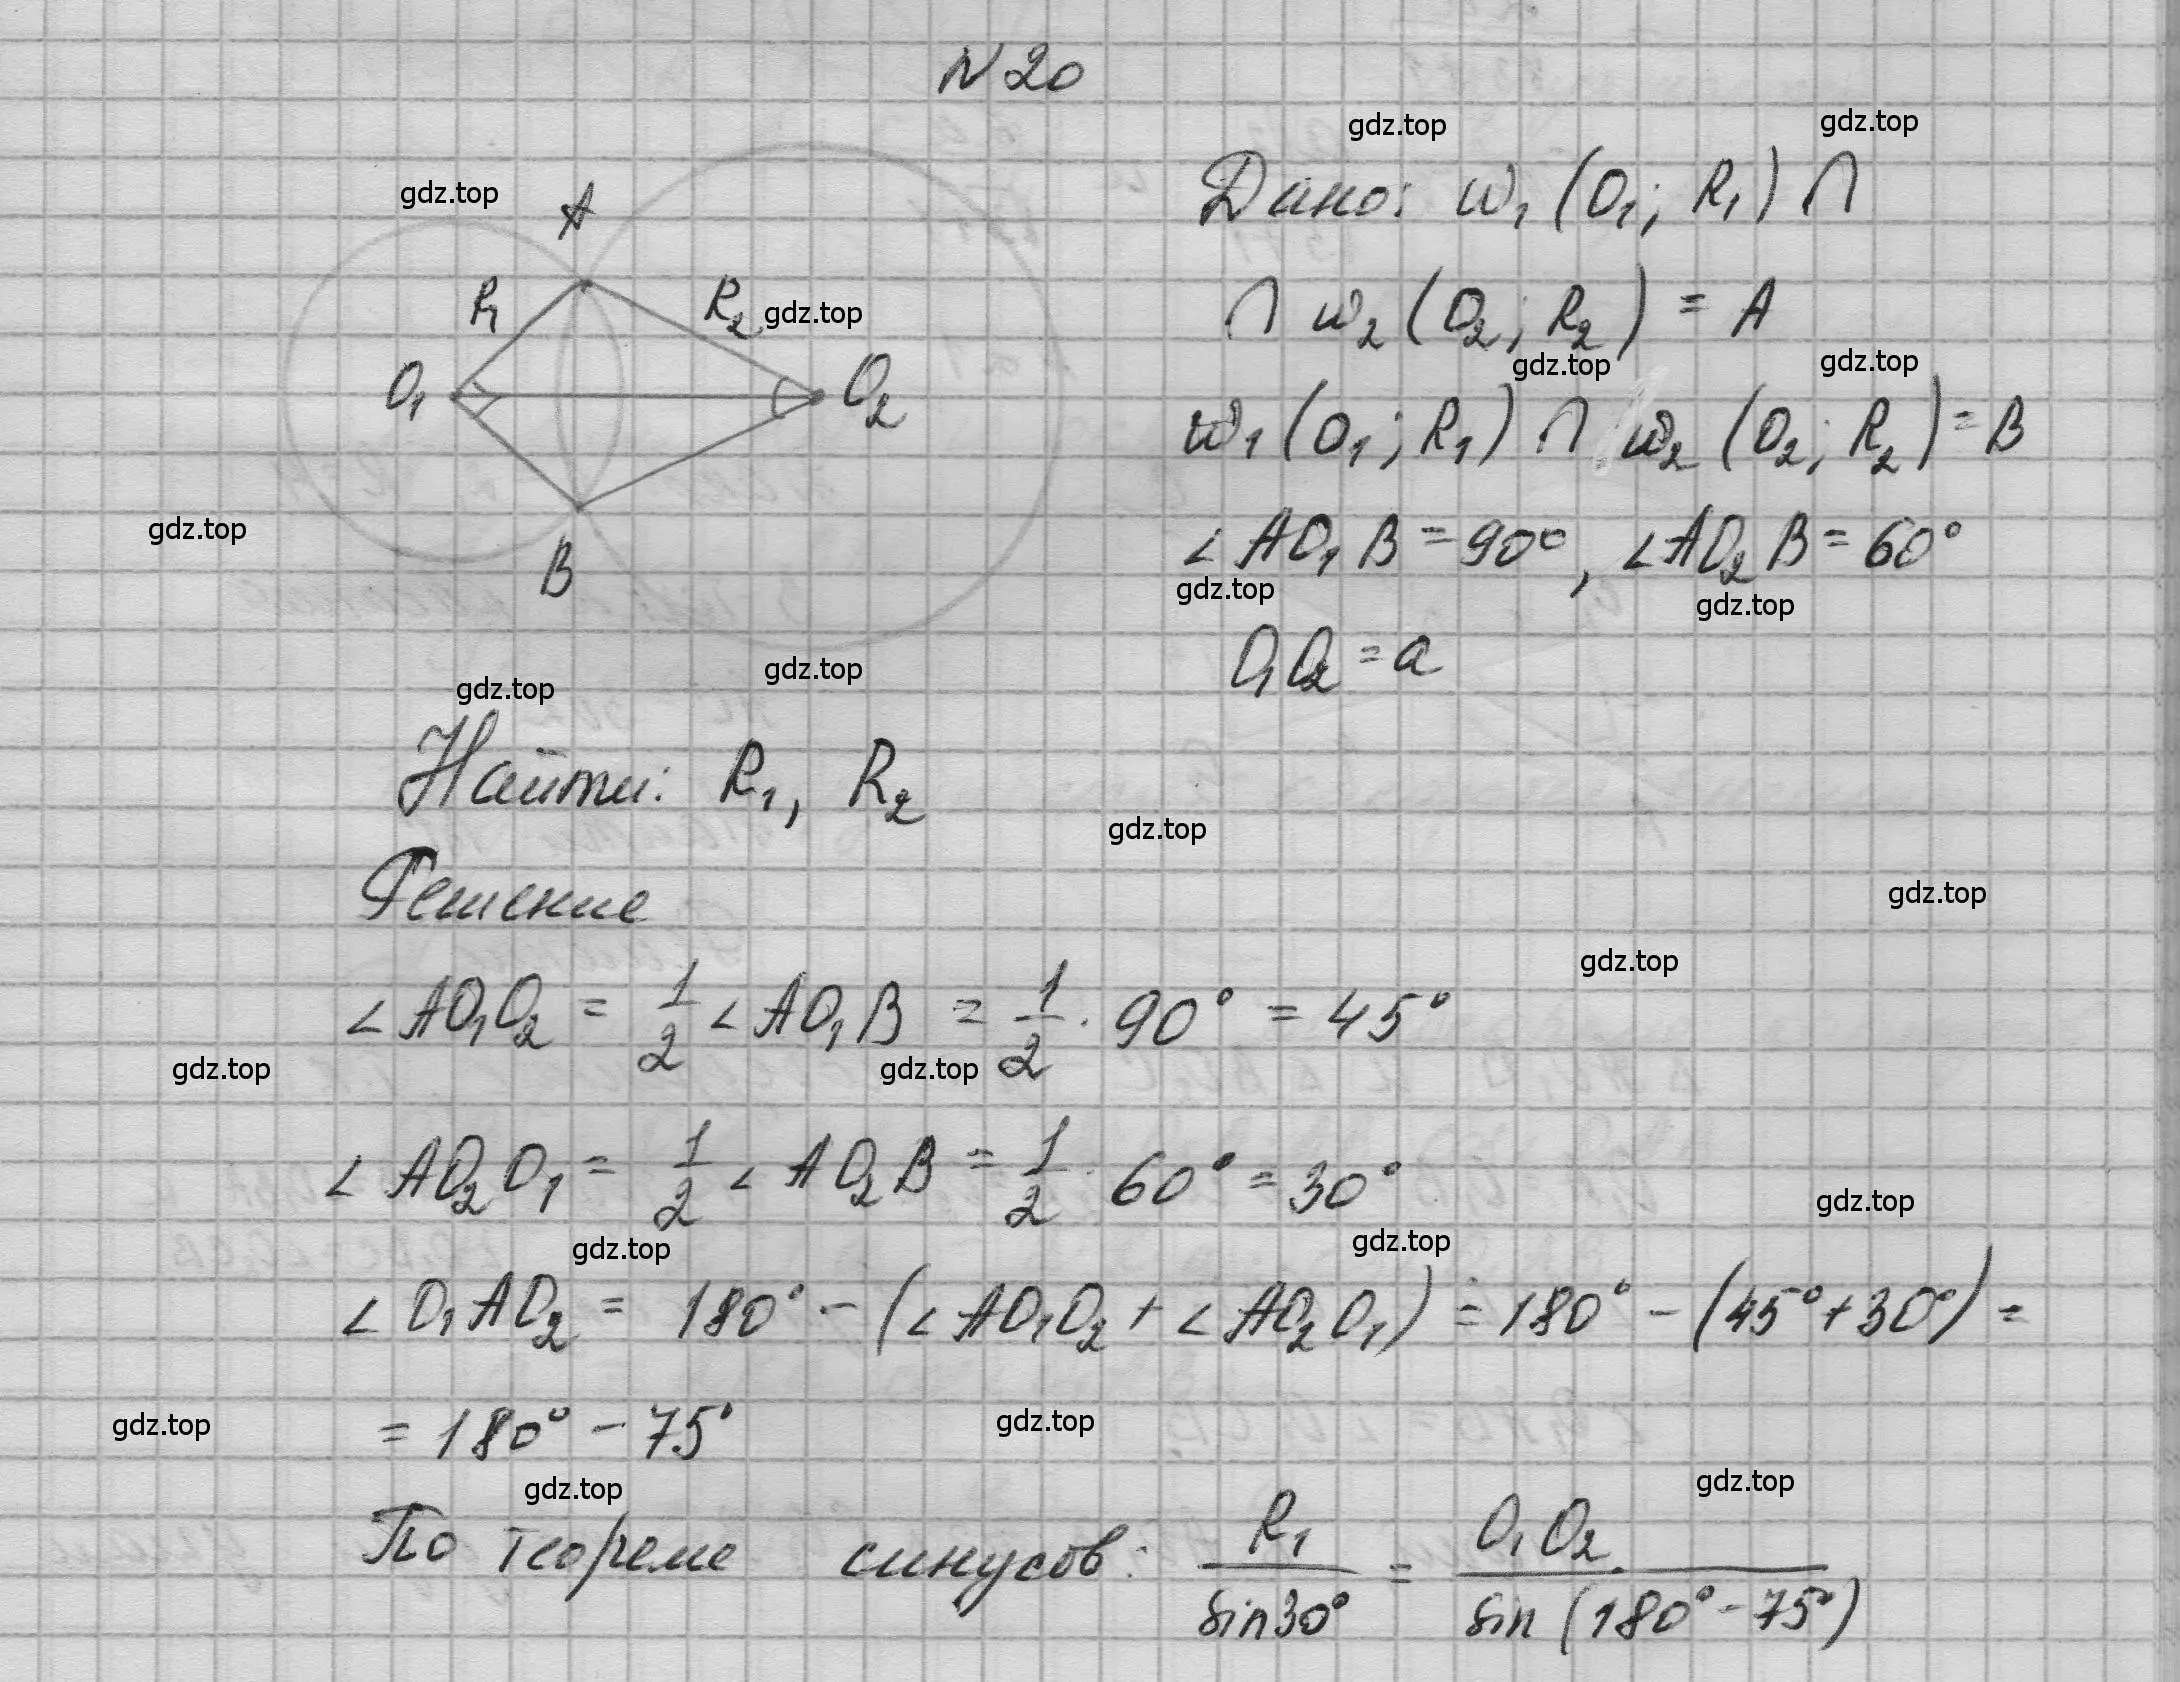 N 20
gdz.top
gdz.top
gdz.top
A
Дано: w₁ (O₁; R₁) ∩
R₁
R₂
gdz.top
∩ w₂ (O₂; R₂) = A
gdz.top
gdz.top
O₁
O₂
w₁ (O₁; R₁) ∩ w₂ (O₂; R₂) = B
gdz.top
∠ AO₁B = 90°, ∠AO₂B = 60°
B
gdz.top
gdz.top
O₁O₂ = a
gdz.top
gdz.top
Найти: R₁, R₂
gdz.top
Решение
gdz.top
gdz.top
∠ AO₁O₂ = 1/2 ∠ AO₁B = 1/2 · 90° = 45°
gdz.top
gdz.top
∠ AO₂O₁ = 1/2 ∠ AO₂B = 1/2 · 60° = 30°
gdz.top
gdz.top
gdz.top
∠ O₁AO₂ = 180° - (∠ AO₁O₂ + ∠ AO₂O₁) = 180° - (45° + 30°) =
gdz.top
gdz.top
= 180° - 75°
gdz.top
gdz.top
По теореме синусов: R₁/sin30° = O₁O₂/sin (180° - 75°)